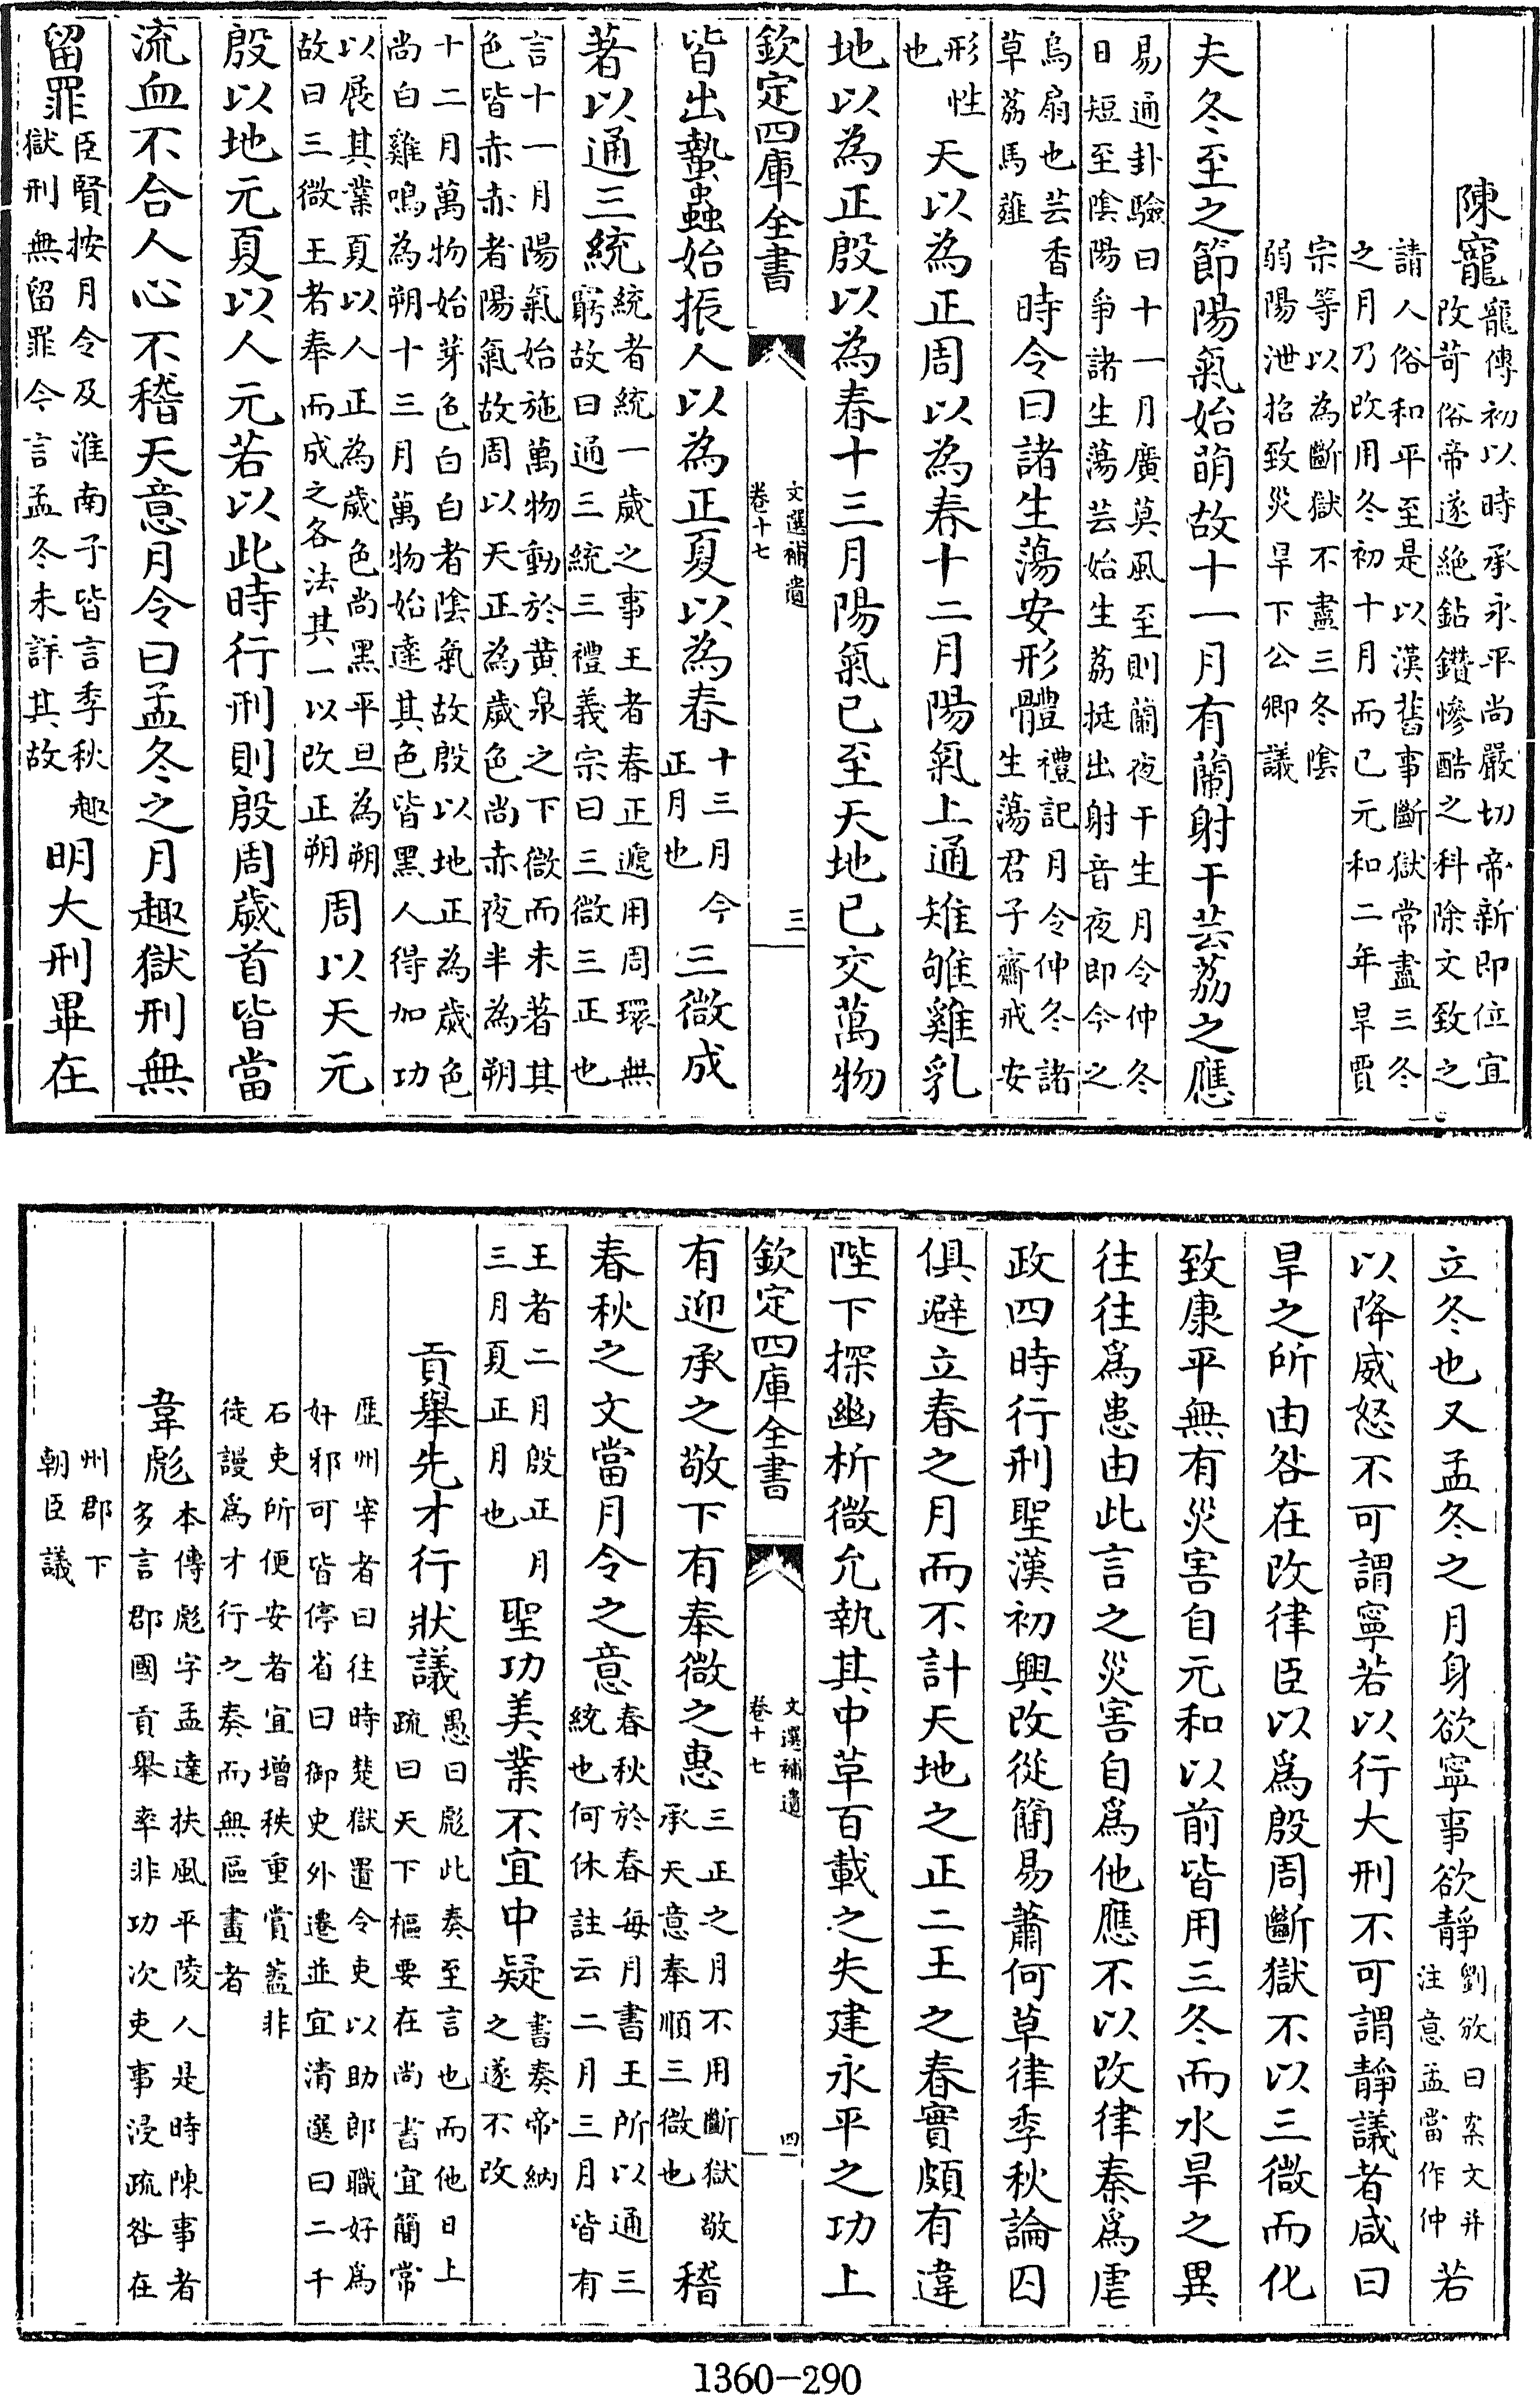 陳寵寵傳初以時承永平尚嚴切帝新即位宜
改苛俗帝遂絶鉆鑽慘酷之科除文致之
請人俗和平至是以漢舊事斷獄常盡三冬
之月乃改用冬初十月而已元和二年旱賈
宗等以為斷獄不盡三冬陰
弱陽泄招致災旱下公卿議
夫冬至之節陽氣始萌故十一月有蘭射干芸荔之應
易通卦驗曰十一月廣莫風至則蘭夜干生月令仲冬
日短至陰陽爭諸生蕩芸始生荔挺出射音夜即今之
烏扇也芸香
草荔馬薤
時令曰諸生蕩安形體禮記月令仲冬諸
生蕩君子齋戒安
形性
也
天以為正周以為春十二月陽氣上通雉雊雞乳
地以為正殷以為春十三月陽氣已至天地已交萬物
欽定四庫全書
文選補遺
卷十七
三
皆出蟄蟲始振人以為正夏以為春十三月今
正月也
三微成
著以通三統統者統一歲之事王者春正遞用周環無
窮故曰通三統三禮義宗曰三微三正也
言十一月陽氣始施萬物動於黄泉之下微而未著其
色皆赤赤者陽氣故周以天正為歲色尚赤夜半為朔
十二月萬物始芽色白白者陰氣故殷以地正為歲色
尚白雞鳴為朔十三月萬物始達其色皆黑人得加功
以展其業夏以人正為歲色尚黑平旦為朔
故曰三微王者奉而成之各法其一以改正朔
周以天元
殷以地元夏以人元若以此時行刑則殷周歲首皆當
流血不合人心不稽天意月令曰孟冬之月趣獄刑無
留罪臣賢按月令及淮南子皆言季秋趣
獄刑無留罪今言孟冬未詳其故
明大刑畢在
立冬也又孟冬之月身欲寧事欲靜劉攽曰案文并
注意孟當作仲
若
以降威怒不可謂寧若以行大刑不可謂靜議者咸曰
旱之所由咎在改律臣以爲殷周斷獄不以三微而化
致康平無有災害自元和以前皆用三冬而水旱之異
往往爲患由此言之災害自爲他應不以改律秦爲虐
政四時行刑聖漢初興改從簡易蕭何草律季秋論囚
俱避立春之月而不計天地之正二王之春實頗有違
陛下探幽析微允執其中草百載之失建永平之功上
欽定四庫全書
文選補遺
卷十七
四
有迎承之敬下有奉微之惠三正之月不用斷獄敬
承天意奉順三微也
稽
春秋之文當月令之意春秋於春每月書王所以通三
統也何休註云二月三月皆有
王者二月殷正月
三月夏正月也
聖功美業不宜中疑書奏帝納
之遂不改
貢舉先才行狀議愚曰彪此奏至言也而他日上
疏曰天下樞要在尚書宜簡常
歴州宰者曰往時楚獄置令吏以助郎職好爲
奸邪可皆停省曰御史外遷並宜清選曰二千
石吏所便安者宜增秩重賞葢非
徒謾爲才行之奏而無區畫者
韋彪本傳彪字孟達扶風平陵人是時陳事者
多言郡國貢舉率非功次吏事浸疏咎在
州郡下
朝臣議
1360-290